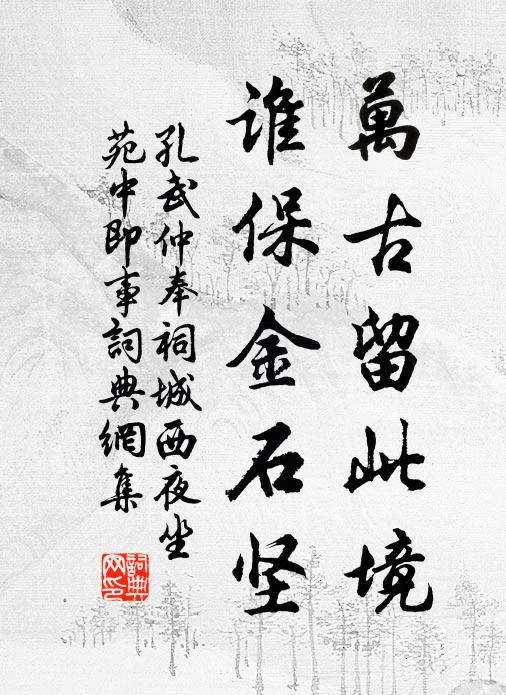 萬古留此境
谁保金石坚
孔武仲奉祠城西夜坐
苑中即事詞典網集
詞典
网印